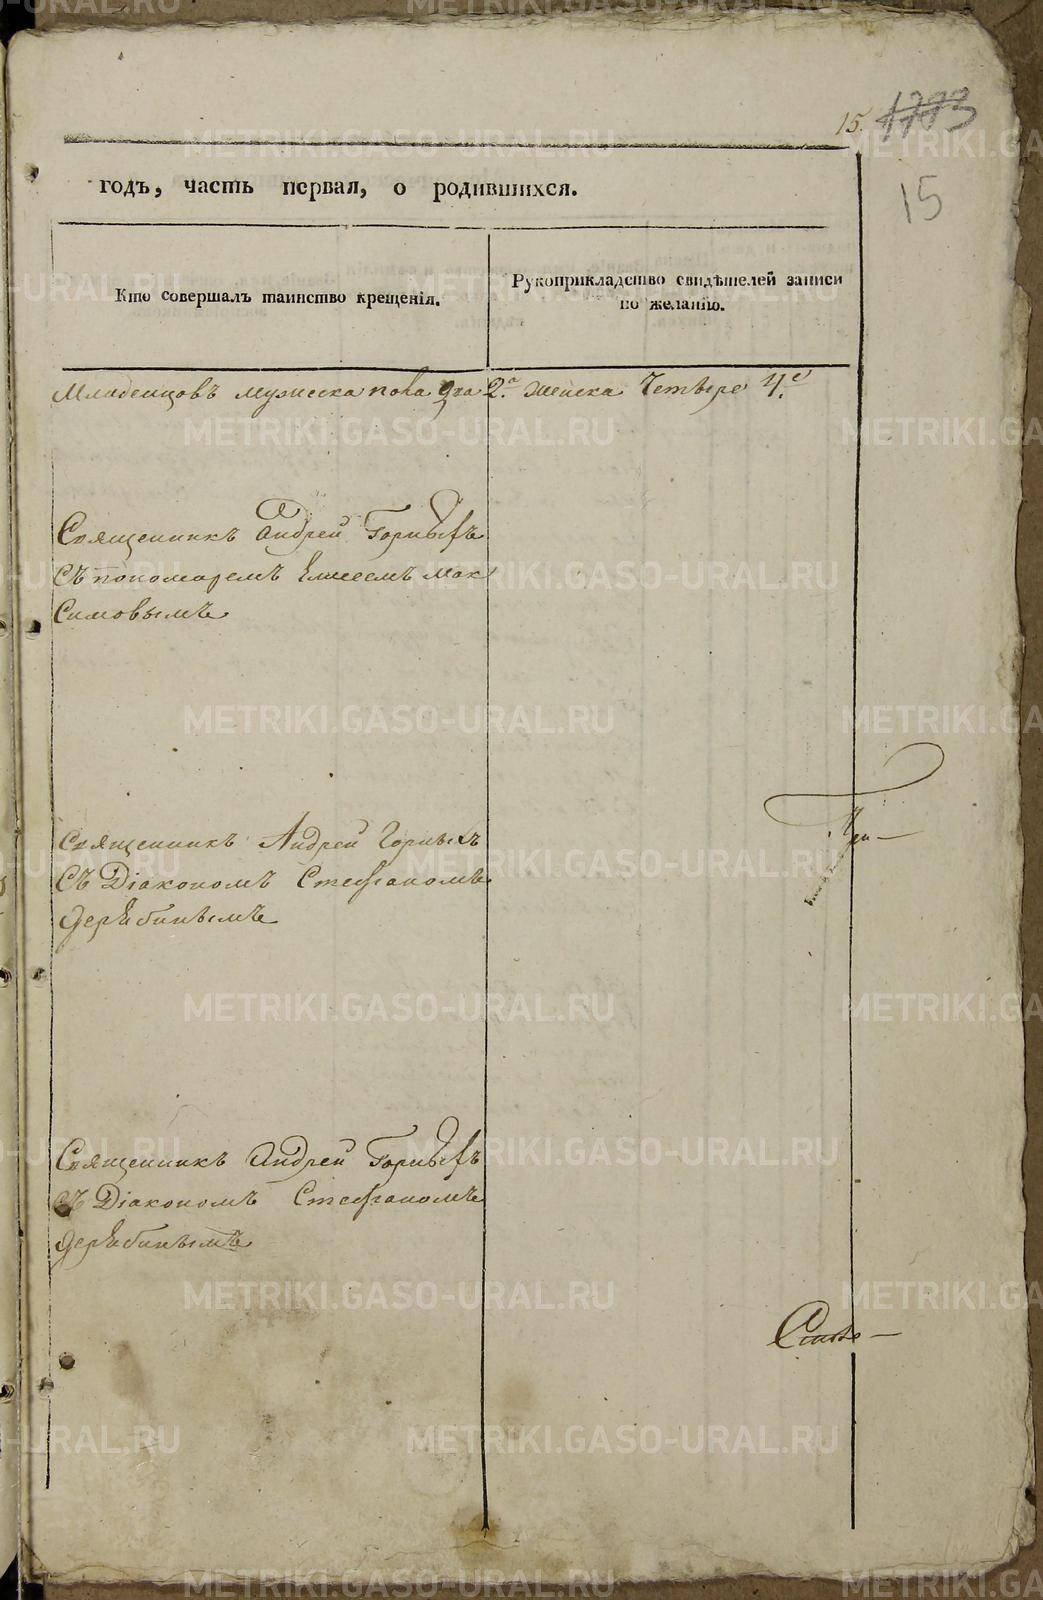 15. 1773
15
годъ, часть первая, о родившихся.
Кто совершалъ таинство крещенія.
Рукоприкладство свидѣтелей записи
по желанію.
Младенцовъ мужеска пола два 2.а женска Четыре 4.е
Священникъ Андрей Горныхъ
Съ пономаремъ Елисеемъ Мак
Симовымъ
Священникъ Андрей Горныхъ
Съ Діакономъ Стефаномъ
Дерябинымъ
Священникъ Андрей Горныхъ
Съ Діакономъ Стефаномъ
Дерябинымъ
METRIKI.GASO-URAL.RU